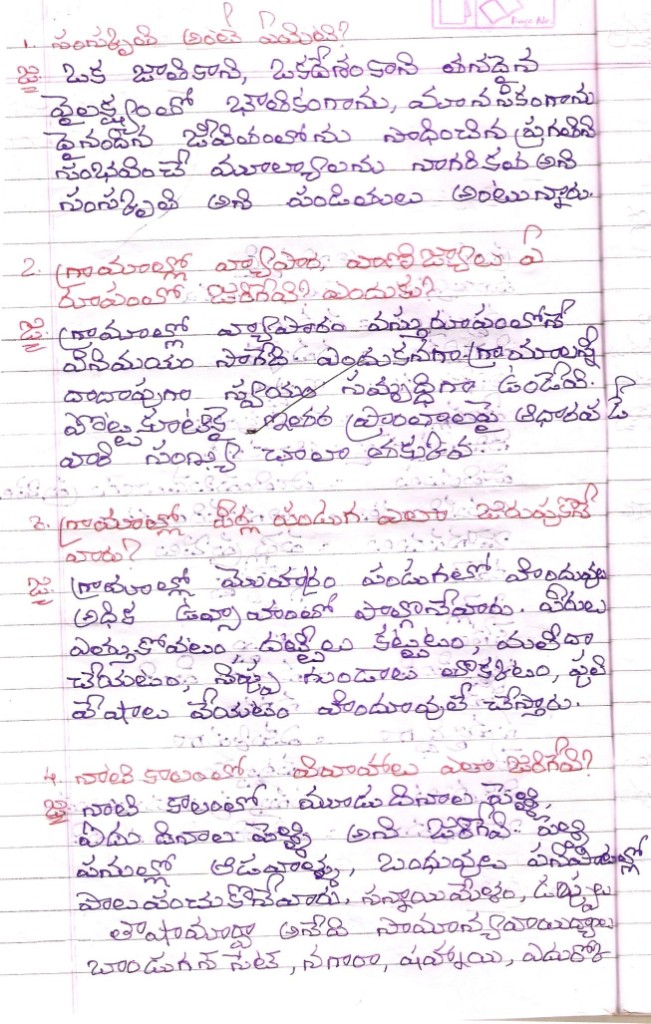 1. సంస్కృతి అంటే ఏమిటి?
జ. ఒక జాతికాని, ఒకదేశంకాని తనదైన
వైలక్ష్యంతో భౌతికంగాను, మానసికంగాను
దైనందిన జీవితంలోను సాధించిన ప్రగతిని
సంభవించే మూల్యాలను నాగరికత అని
సంస్కృతి అని పండితులు అంటున్నారు.
2. గ్రామాల్లో వ్యాపార, వాణిజ్యాలు ఏ
రూపంలో జరిగేవి? ఎందుకు?
జ. గ్రామాల్లో వ్యాపారం వస్తురూపంలోనే
వినిమయం సాగేది. ఎందుకనగా గ్రామాలన్నీ
దాదాపుగా స్వయం సమృద్ధిగా ఉండేవి.
పొట్టకూటికై ఇతర ప్రాంతాలపై ఆధారపడే
వారి సంఖ్య చాలా తక్కువ.
3. గ్రామాల్లో పీర్ల పండుగ ఎలా జరుపుకొనే
వారు?
జ. గ్రామాల్లో మొహర్రం పండుగలో హిందువులు
అధిక ఉత్సాహంతో పాల్గొనేవారు. పీరులు
ఎత్తుకోవటం దట్టీలు కట్టటం, మలీదా
చేయటం, నిప్పు గుండాలు తొక్కటం, పులి
వేషాలు వేయటం హిందూవులే చేస్తారు.
4. నాటి కాలంలో వివాహాలు ఎలా జరిగేవి?
జ. నాటి కాలంలో మూడు దినాల పెళ్ళి,
ఏడు దినాల పెళ్ళి అని జరిగేవి. పెళ్లి
పనుల్లో ఆడవాళ్ళు, బంధువులు పనిపాటల్లో
పాలుపంచుకొనేవారు. సన్నాయిమేళం, డప్పులు
తాషామార్ఫా అనేది సామాన్యవాయిద్యాలు
బాండుగన్ సెట్, నగారా, షహ్నాయి, ఎదురోళ